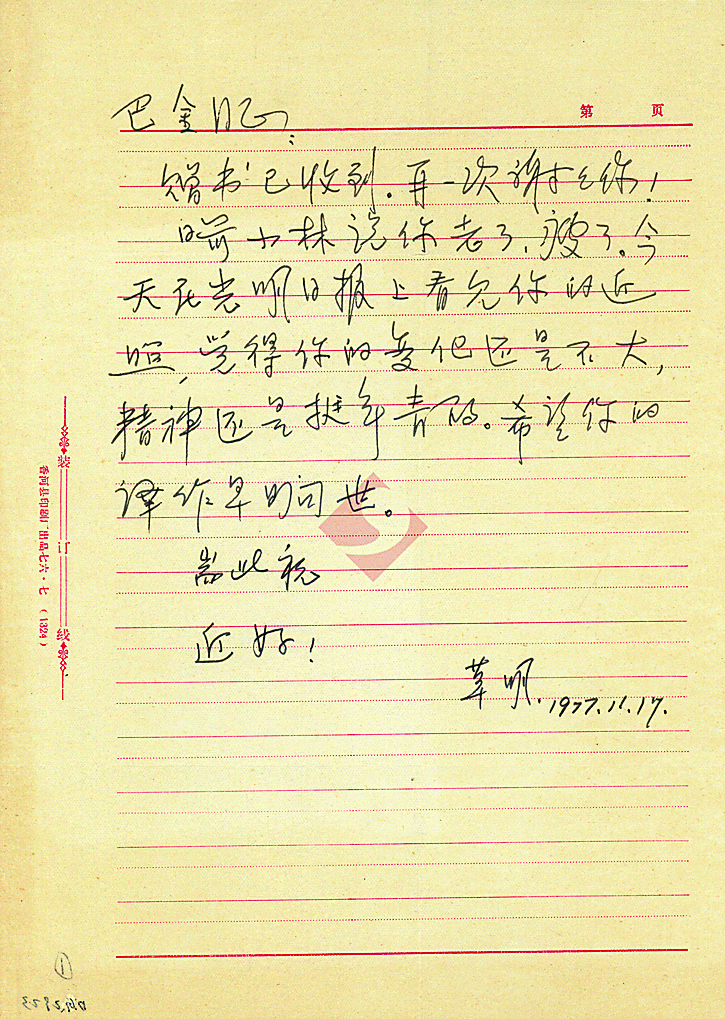 第 页
巴金同志：
赠书已收到。再一次谢谢你！
日前小林说你老了，疲了。今
天在光明日报上看见你的近
照，觉得你的变化还是不大，
精神还是挺年青的。希望你的
译作早日问世。
耑此祝
近好！
草明.1977.11.17.
装订线
香河县印刷厂出品七六·七（1324）
①